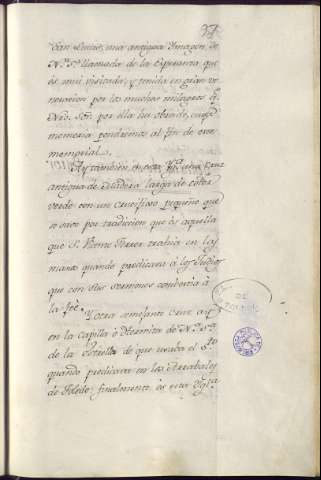 37
San Lucas, una antigua Ymagen de
N.ª S.ª llamada de la Esperanza que
es mui visitada, y tenida en gran ve
neracion por los muchos milagros q.
Nro. Sor. por ella ha obrado, cuya
memoria pondremos al fin de este
memorial.
Ay tambien en esta Yglesia Cruz
antigua de Madera larga de color
verde con un Crucifixo pequeño que
se save por tradicion que es aquella
que S. Vicente Ferrer trahia en las
manos quando predicava á los Judios
que con sus sermones combertia á
la fee.
Y otra semejante Cruz ay
en la capilla ó Hermita de N.ª S.ª
de la Estrella de que usaba el S.to
quando predicava en los Arrabales
de Toledo: finalmente es esta Ygl.ª
DE
TOLEDO